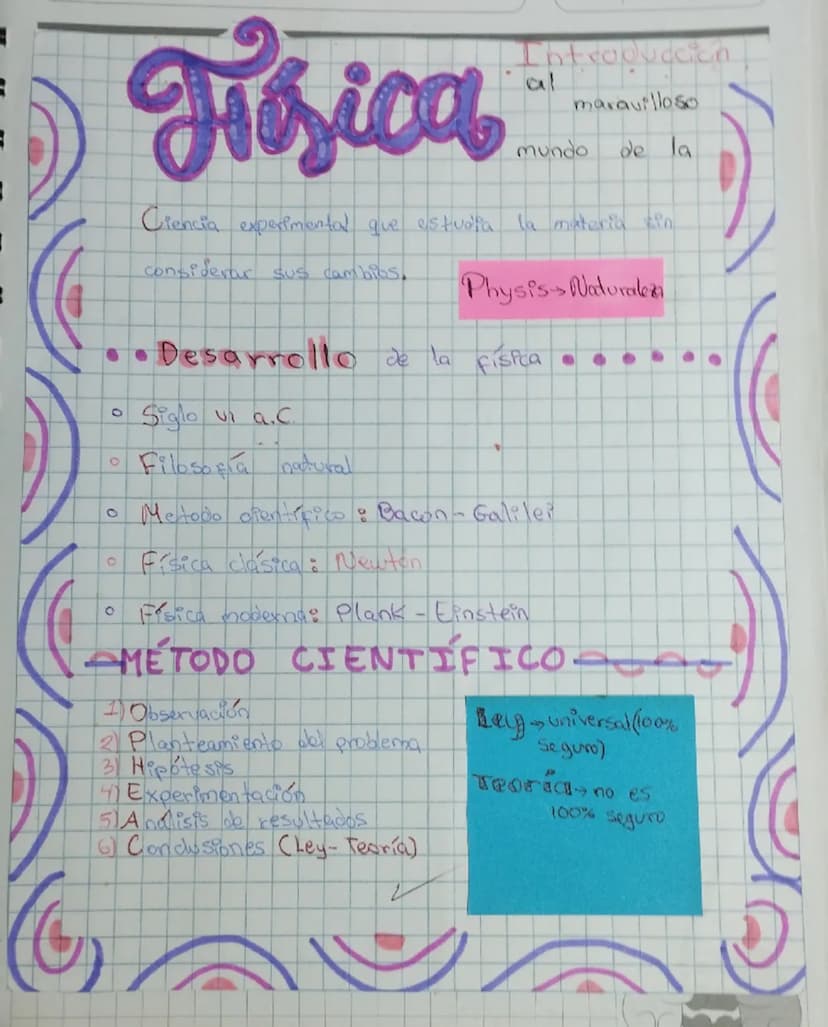 Física
Introducción
al
maravilloso
mundo de la
Ciencia experimental que estudia la materia sin
considerar sus cambios.
Physis→Naturaleza
Desarrollo de la física
Siglo VI a.C.
Filosofía natural
Metodo científico: Bacon-Galilei
Física clásica: Newton
Física moderna: Plank-Einstein
MÉTODO CIENTÍFICO
1) Observación
2) Planteamiento del problema
3) Hipótesis
4) Experimentación
5) Análisis de resultados
6) Conclusiones (Ley-Teoría)
Ley→universal(100%
seguro)
Teoría→no es
100% seguro